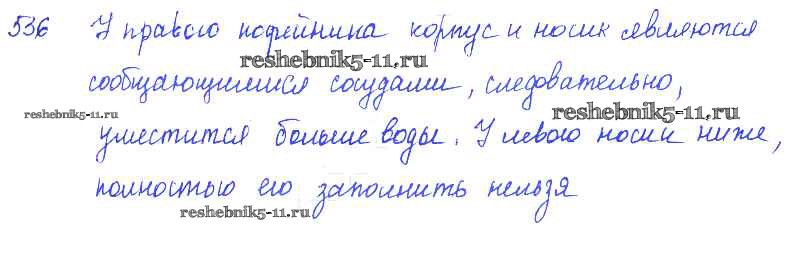 536 У правого кофейника корпус и носик являются
reshebnik5-11.ru
сообщающимися сосудами, следовательно,
reshebnik5-11.ru
reshebnik5-11.ru
уместится больше воды. У левого носик ниже,
полностью его заполнить нельзя
reshebnik5-11.ru